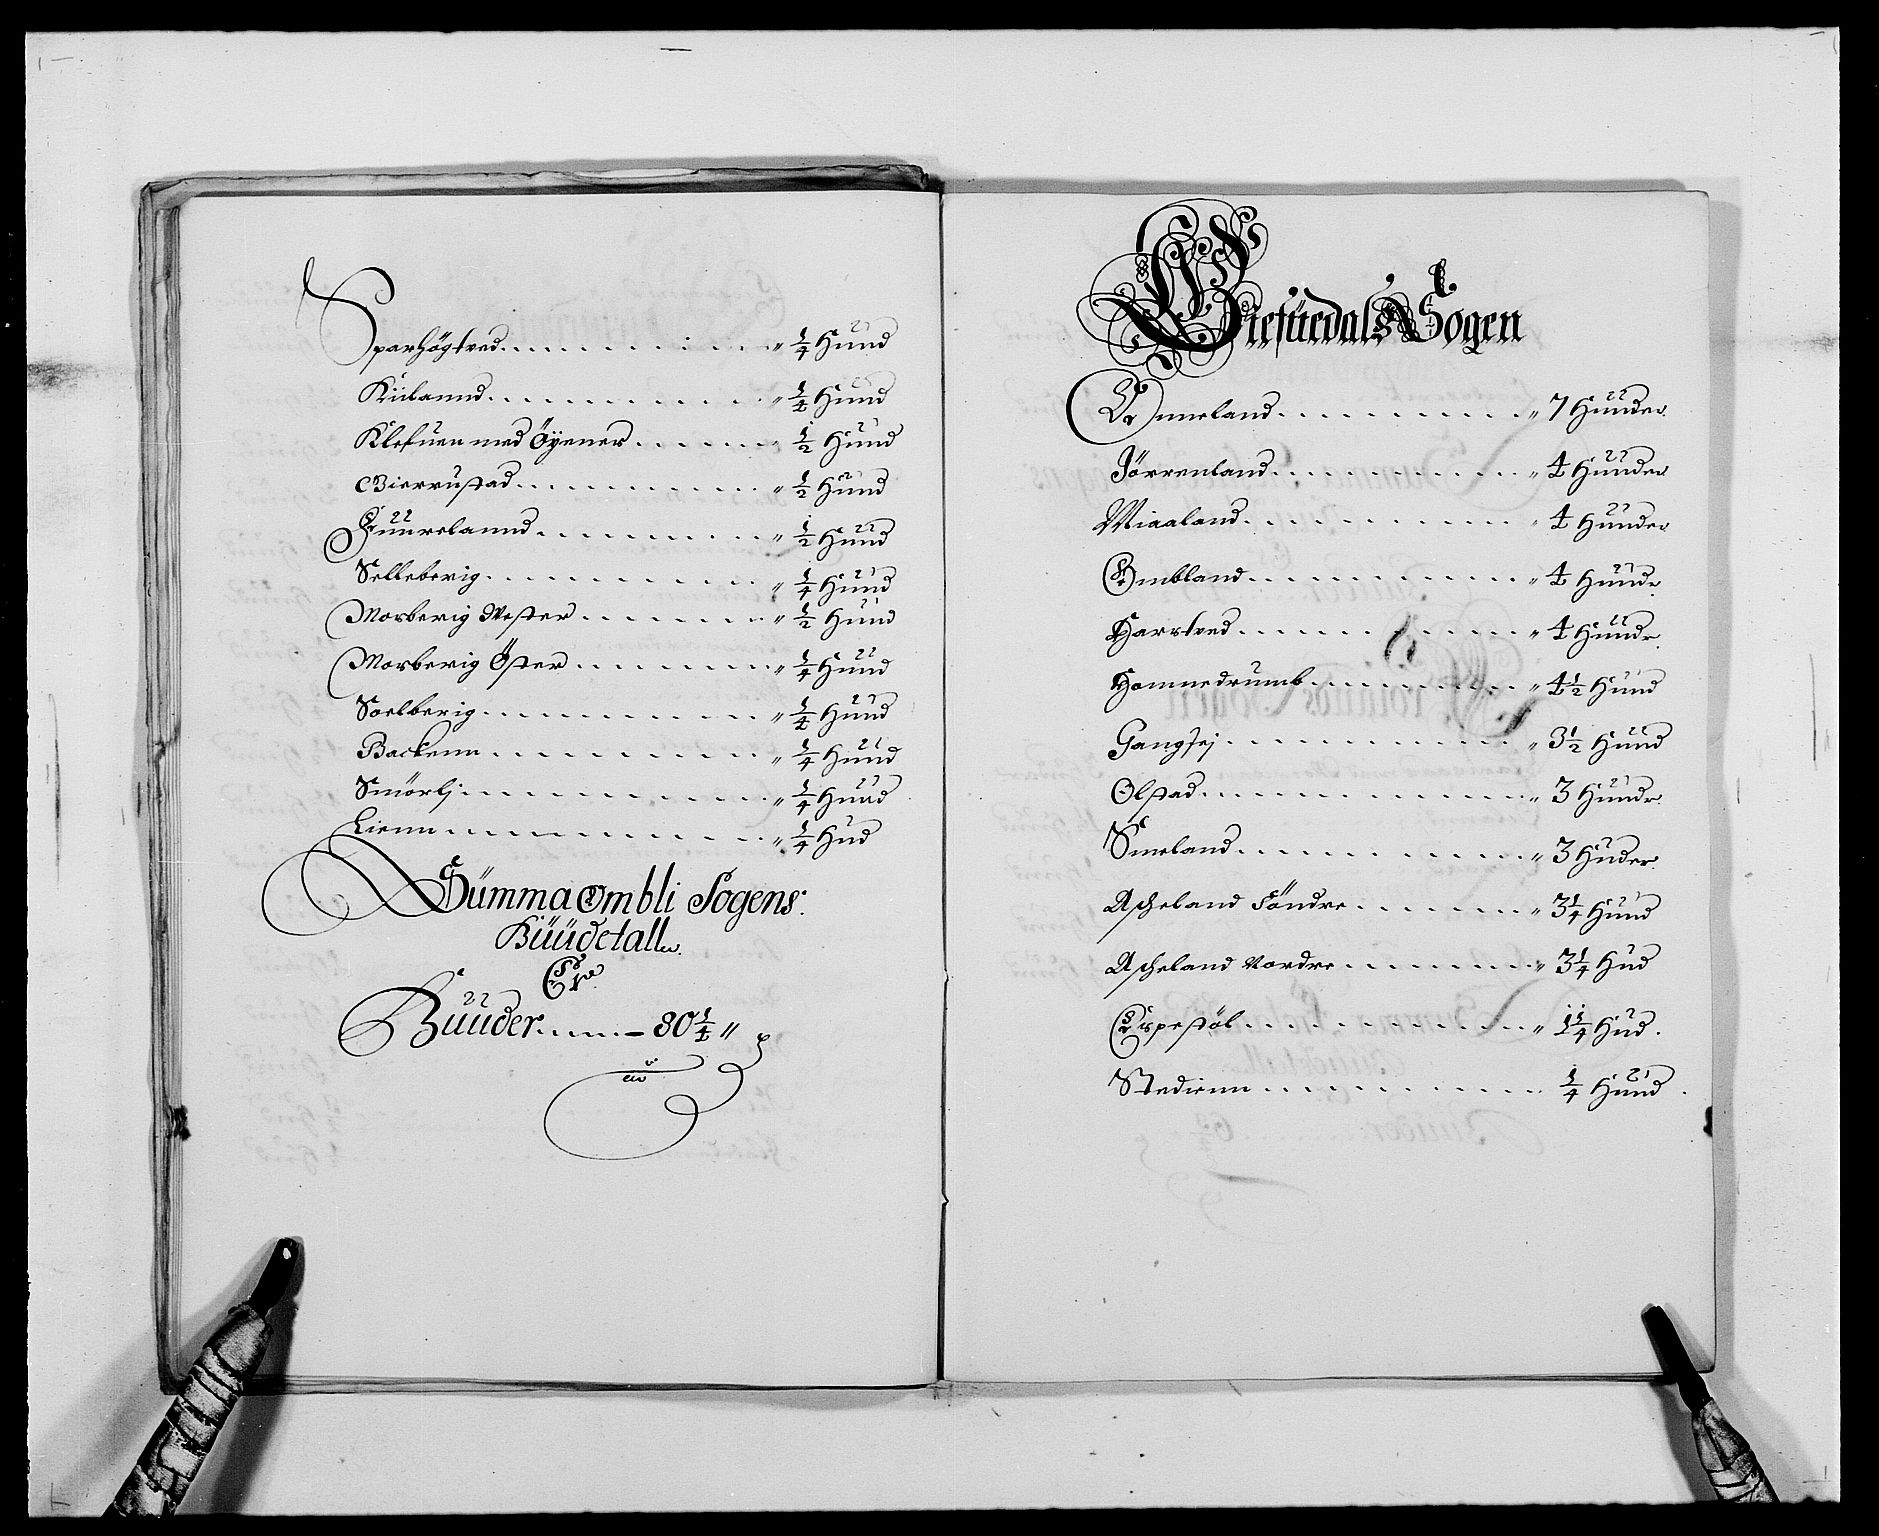 Sparhögtved " 1/4 Hund
Kiilannd " 1/2 Hund
Klefuen med Öyener " 1/2 Hund
Bierrustad " 1/2 Hund
Fuurelannd " 1/2 Hund
Selleberig " 1/4 Hund
Morberig Wester " 1/2 Hund
Morberig Öster " 1/4 Hund
Soelberig " 1/2 Hund
Backenn " 1/4 Hund
Smörlj " 1/4 Hund
Lienn " 1/4 Hud
Summa Ombli Sogens
Huudetall
Er
Huuder 80 1/2 "
Giefuedals Sogen
Unneland " 7 Hunder
Jörrenland " 4 Hunder
Miaaland " 4 Hunder
Ombland " 4 Hundr.
Harstved " 4 Hundr.
Hommedrumb " 4 1/2 Hund
Gangsej " 3 1/2 Hund
Olstad " 3 Hundr.
Simeland " 3 Huder
Ascheland Söndre " 3 1/4 Hund
Ascheland Nordre " 3 1/4 Hud
Espestöl " 1 1/4 Hud.
Stedienn 1/4 Hund